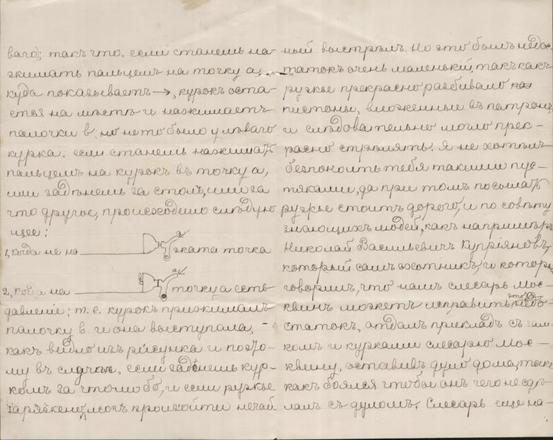 ваго; такъ что, если станешь на-
жимать пальцемъ на точку а,
куда показываетъ →, курокъ оста-
ется на мѣстѣ и нажимаетъ
палочки в, но не то было у лѣваго
курка. если станешь нажимать
пальцемъ на курокъ въ точку а,
или задѣнешь за столъ, или за
что другое, происходило слѣдую
щее:
1, когда не на жата точка
2, когда на точку а есть
давленіе; т.е. курокъ прижималъ
палочку в и она выступала, -
какъ видно изъ рисунка и поэто-
му въ случаѣ, если задѣнешь кур-
комъ за что либо, и если ружье
заряжено, могъ произойти нечай
ный выстрѣлъ. Но это былъ недо-
статокъ очень маленькій, такъ какъ
ружье прекрасно разбивало
пистоны, вложенные въ патроны
и слѣдовательно могло прек-
расно стрѣлять. Я не хотѣлъ
безпокоить тебя такими пус-
тяками, да при томъ посылать
ружье стоитъ дорого, и по совѣту
знающихъ людей, какъ напримѣръ
Николай Васильевичъ Купріяновъ,
который самъ охотникъ, и который
говорилъ, что нашъ слесарь Мос-
квинъ можетъ исправить этотъ недо-
статокъ, отдалъ прикладъ съ зам-
комъ и курками слесарю Мос-
квину, оставивъ дуло дома, такъ
какъ боялся чтобы онъ чего не сдѣ-
лалъ съ дуломъ. Слесарь еще на-